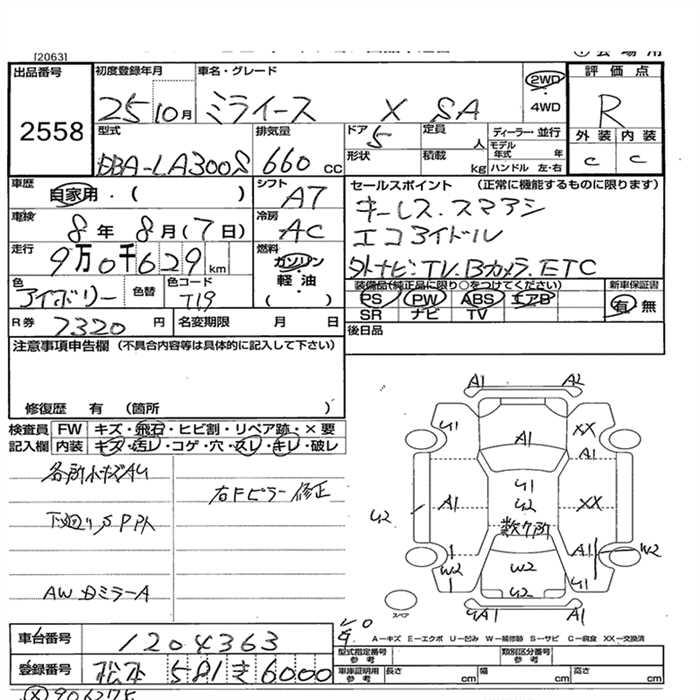 [2063]
出品番号
2558
初度登録年月
25 10月
車名・グレード
ミライース X SA
2WD
4WD
評価点
R
外装 内装
C C
型式
DBA-LA300S
排気量
660 CC
ドア 5
形状
定員 人
積載 kg
ディーラー・並行
モデル年式 年
ハンドル 左・右
車歴
自家用・( )
シフト
A7
セールスポイント (正常に機能するものに限ります)
キーレス.スマアシ
エコアイドル
社外ナビ.TV.Bカメラ.ETC
車検
8年 8月(7日)
冷房
AC
走行
9万0千629km
燃料
ガソリン
軽油
( )
色
アイボリー
色替
色コード
T19
装備品(純正品に限り○をつけてください)
PS PW ABS エアB
SR ナビ TV
新車保証書
有 無
R券 7320円
名変期限 月 日
後日品
注意事項申告欄 (不具合内容等は具体的に記入して下さい)
修復歴 有 (箇所 )
検査員 FW キズ・飛石・ヒビ割・リペア跡・×要
記入欄 内装 キズ・汚レ・コゲ・穴・スレ・キレ・破レ
各所小キズAU
右Fピラー修正
下廻りS
AW Dミラー A
A1 A2
U1 A1 XX
A1
A1 U1 XX
U2 U2
数ヶ所
W2 W2 A1 W2
U1 U1
UA1 A1
スペア
A-キズ E-エクボ U-凹み W-補修跡 S-サビ C-腐食 XX-交換済
車台番号 1204363
登録番号 松本 581 き 6000
型式指定番号
参考
類別区分番号
参考
車庫証明用
参考
長さ cm 幅 cm 高さ cm